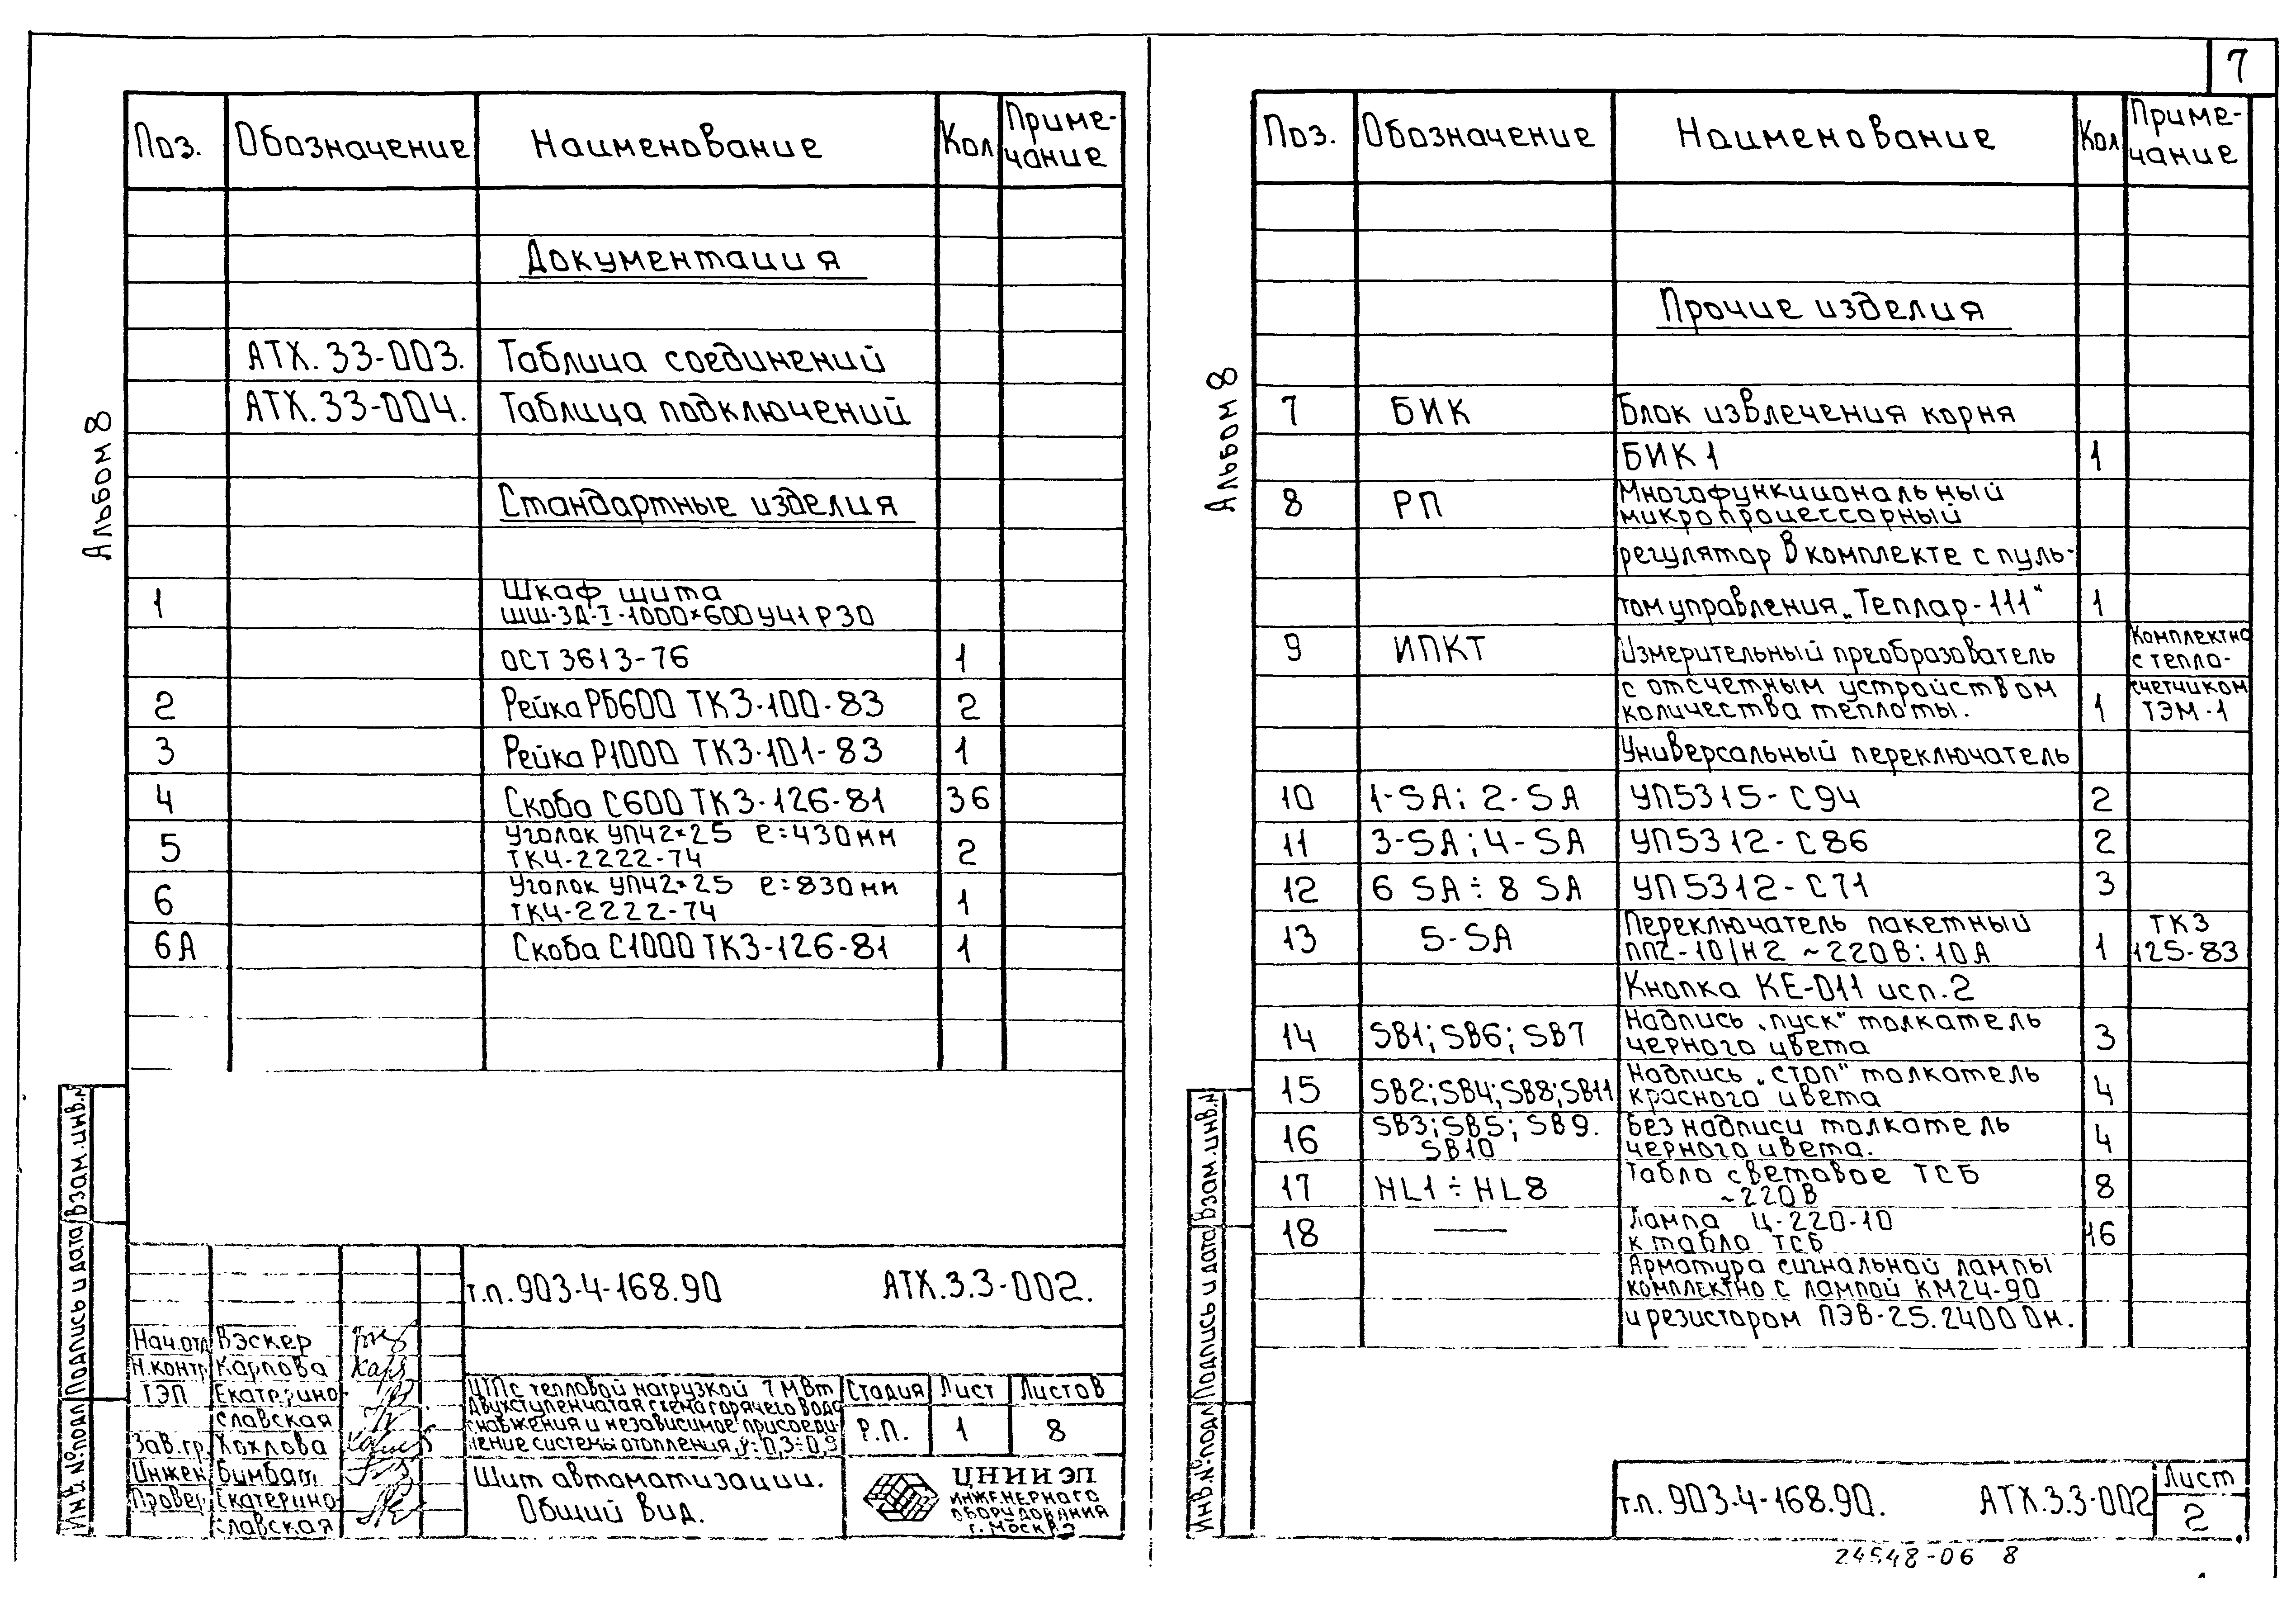 7
Поз. Обозначение Наименование Кол Приме-
чание
Документация
АТХ.33-003. Таблица соединений
АТХ.33-004. Таблица подключений
Стандартные изделия
1 Шкаф щита
ЩШ-ЗД-I-1000×600У41Р30
ОСТ3613-76 1
2 Рейка РБ600 ТК3-100-83 2
3 Рейка Р1000 ТК3-101-83 1
4 Скоба С600 ТК3-126-81 36
5 Уголок УП42×25 ℓ=430мм
ТК4-2222-74 2
6 Уголок УП42×25 ℓ=830мм
ТК4-2222-74 1
6А Скоба С1000 ТК3-126-81 1
Альбом 8
Взам.инв.№
Подпись и дата
Инв.№подл
т.п.903-4-168.90 АТХ.3.3-002.
Нач.отд Вэскер
Н.контр Карпова
ГЭП Екатерино-
славская
Зав.гр. Хохлова
Инжен. Бимбат
Провер. Екатерино-
славская
ЦТП с тепловой нагрузкой 7 МВт
Двухступенчатая схема горячего водо
снабжения и независимое присоеди-
нение системы отопления,
Стадия Лист Листов
Р.П. 1 8
Щит автоматизации.
Общий вид.
ЦНИИЭП
ИНЖЕНЕРНОГО
ОБОРУДОВАНИЯ
г.Москва
Поз. Обозначение Наименование Кол Приме-
чание
Прочие изделия
7 БИК Блок извлечения корня
БИК1 1
8 РП Многофункциональный
микропроцессорный
регулятор в комплекте с пуль-
том управления „Теплар-111" 1
9 ИПКТ Измерительный преобразователь
с отсчетным устройством
количества теплоты. 1
Комплектно
с тепло-
счетчиком
ТЭМ-1
Универсальный переключатель
10 1-SA; 2-SA УП5315-С94 2
11 3-SA; 4-SA УП5312-С86 2
12 6 SA÷8 SA УП5312-С71 3
13 5-SA Переключатель пакетный
ПП2-10/Н2 ~220В;10А 1 ТК3
125-83
Кнопка КЕ-011 исп.2
14 SB1; SB6; SB7 Надпись „пуск" толкатель
черного цвета 3
15 SB2;SB4;SB8;SB11 Надпись „стоп" толкатель
красного цвета 4
16 SB3;SB5; SB9.
SB10 Без надписи толкатель
черного цвета. 4
17 HL1÷HL8 Табло световое ТСБ
~220В 8
18 — Лампа Ц-220-10
к табло ТСБ 16
Арматура сигнальной лампы
комплектно с лампой КМ24-90
и резистором ПЭВ-25.2400 Ом.
Альбом 8
Взам.инв.№
Подпись и дата
Инв.№подл
т.п. 903-4-168.90. АТХ.3.3-002
Лист
2
24548-06 8